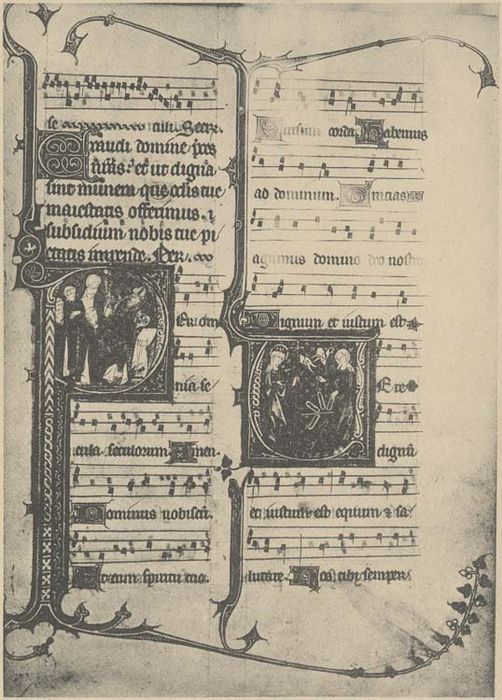 se culi. Secre.
Exaudi domine pces
nras: et ut digna
sint munera que oculis tue
maiestatis offerimus.
subsidium nobis tue pi
etatis impende. Per
Per om
nia se
cula seculorum Amen.
Dominus vobiscũ
Et cum spiritu tuo.
Sursum corda. Habemus
ad dominum. Gracias
agimus domino deo nostro
Dignum et iustum est
Vere
dignũ
et iustum est equum & sa
lutare. tibi semper